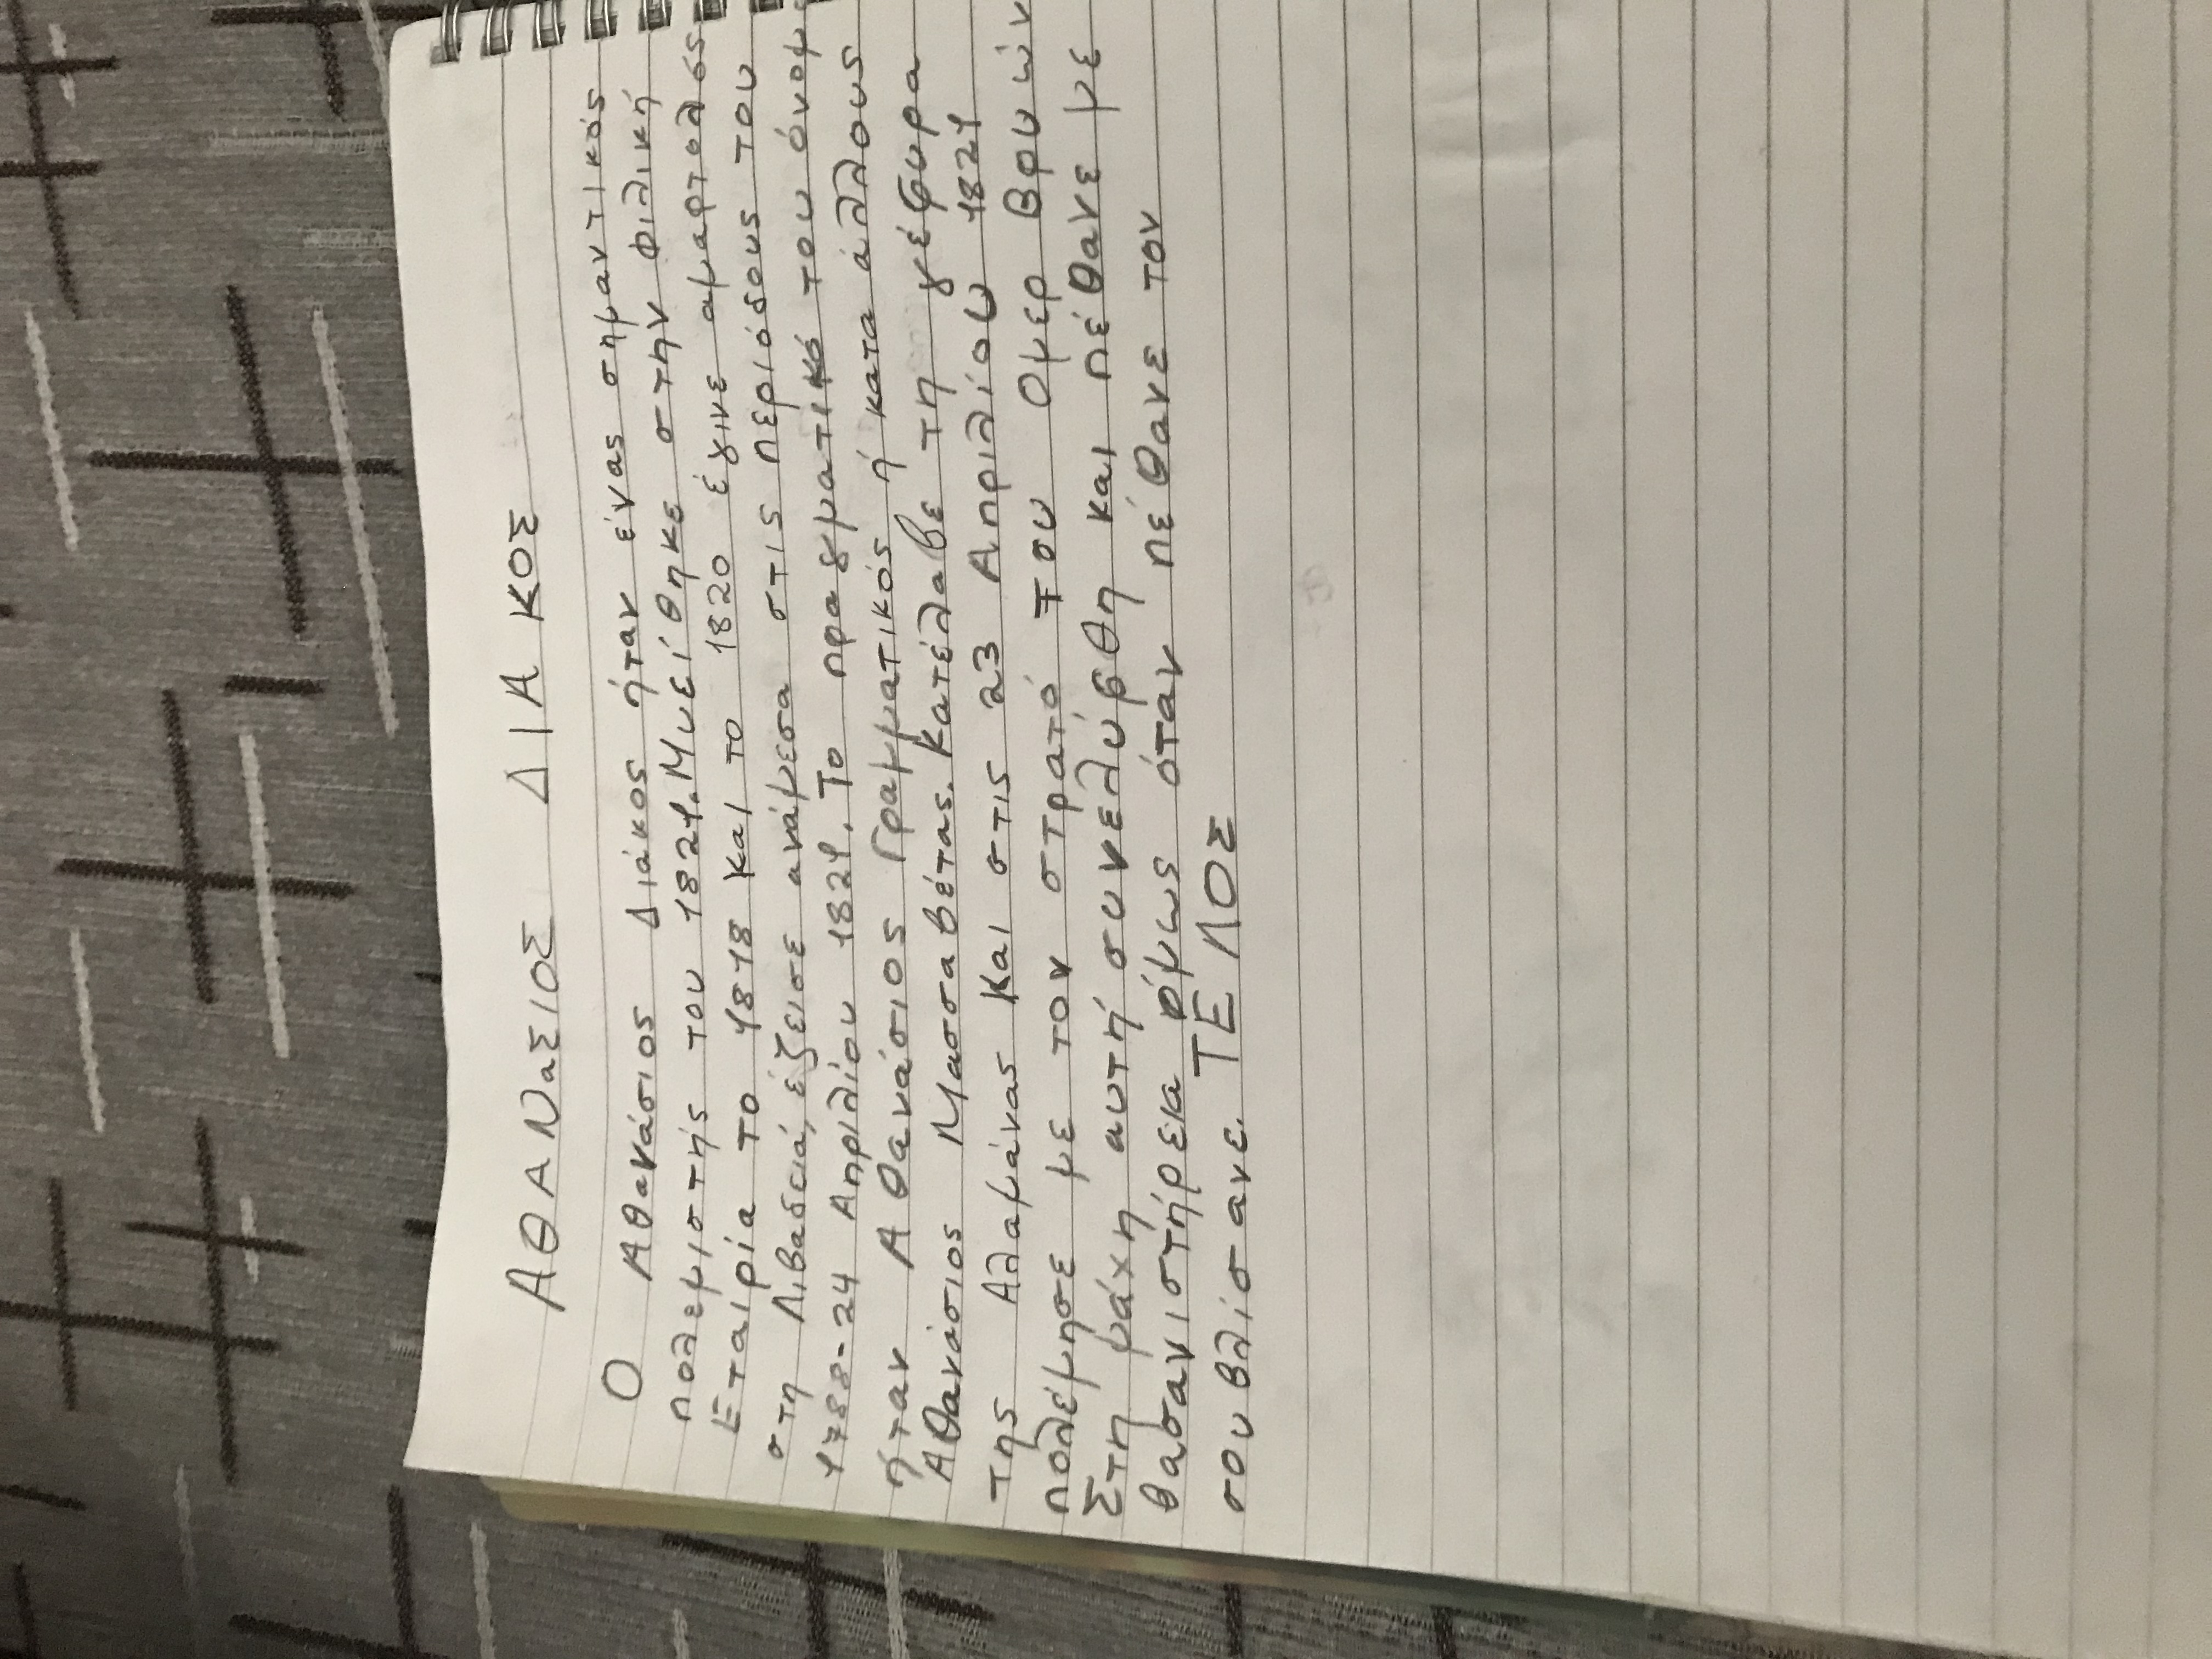 ΑΘΑΝαΣΙΟΣ ΔΙΑΚΟΣ
Ο Αθανάσιος Διάκος ήταν ένας σημαντικός
πολεμιστής του 1821. Μυείθηκε στην Φιλική
Εταιρία το 1818 και το 1820 έγινε αμαρτολός
στη Λιβαδειά, έζεισε ανάμεσα στις περιόδους του
1788-24 Απριλίου 1821. Το πραγματικό του όνομ
ήταν Αθανάσιος Γραμματικός ή κατα άλλους
Αθανάσιος Μασσαβέτας. Κατέλαβε τη γέφυρα
της Αλαμάνας και στις 23 Απριλίου 1821
πολέμησε με τον στρατό του Ομερ Βρυών
Στη μάχη αυτή συνελύφθη και πέθανε με
βασανιστήρεια όμως όταν πέθανε τον
σουβλίσανε. ΤΕΛΟΣ